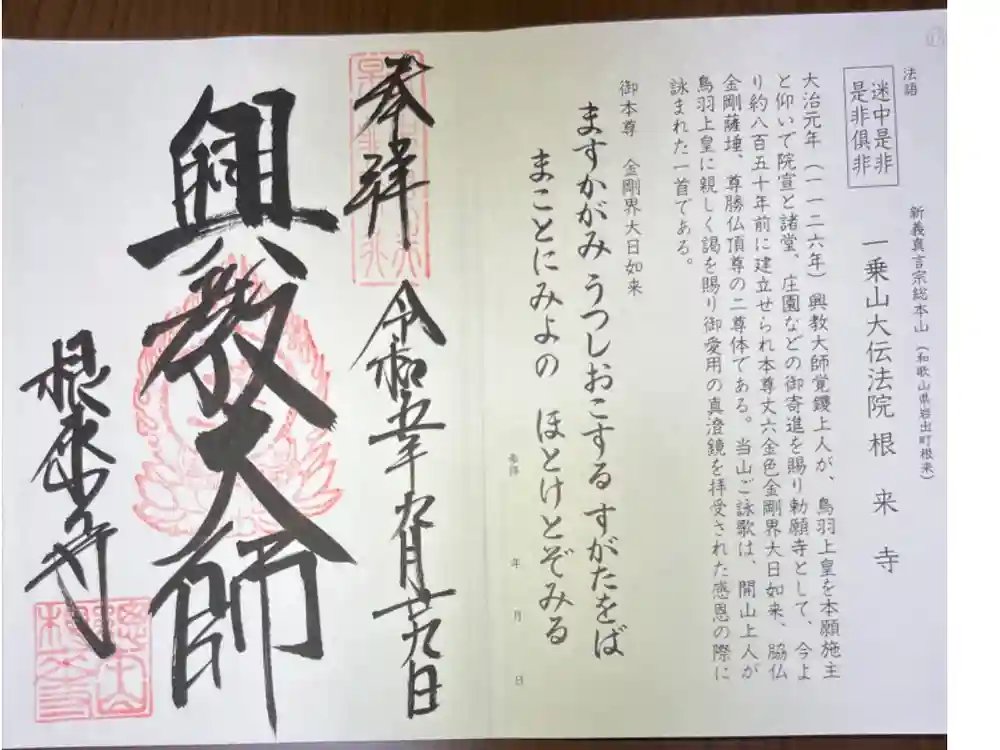 法語
迷中是非
是非俱非
新義真言宗総本山（和歌山県岩出町根来）
一乗山大伝法院根来寺
大治元年（一一二六年）興教大師覚鑁上人が、鳥羽上皇を本願施主
と仰いで院宣と諸堂、庄園などの御寄進を賜り勅願寺として、今よ
り約八百五十年前に建立せられ本尊丈六金色金剛界大日如来、脇仏
金剛薩埵、尊勝仏頂尊の二尊体である。当山ご詠歌は、開山上人が
鳥羽上皇に親しく謁を賜り御愛用の真澄鏡を拝受された感恩の際に
詠まれた一首である。
御本尊　金剛界大日如来
ますかがみ うつしおこする すがたをば
まことにみよの ほとけとぞみる
参拝　年　月　日
奉拝
令和五年九月廿九日
興教大師
根来寺